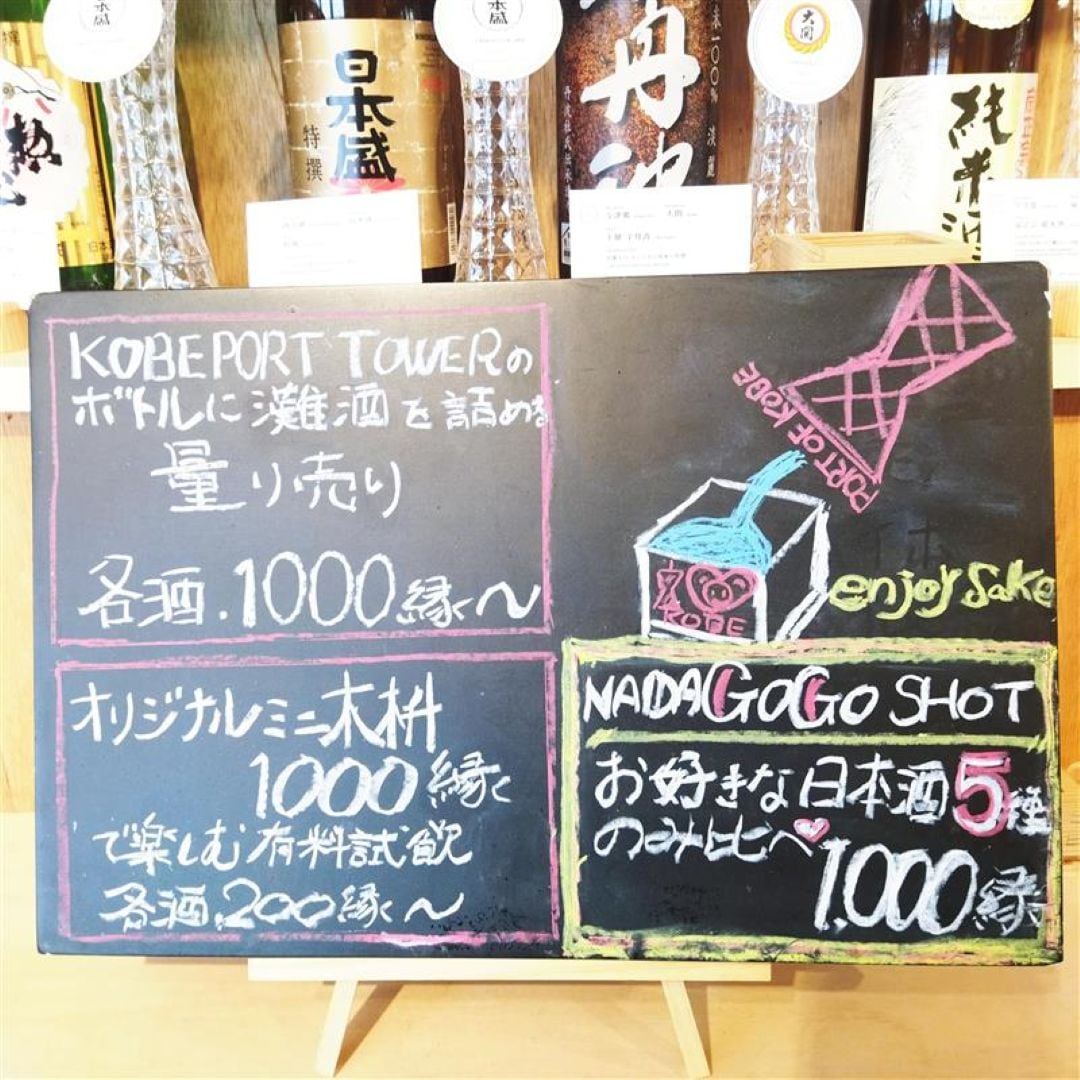 日本盛
特撰
丹波
大関
純米酒
KOBE PORT TOWERの
ボトルに灘酒を詰める
量り売り
各酒.1000縁〜
オリジナルミニ木枡
1000縁
で楽しむ有料試飲
各酒.200縁〜
PORT OF KOBE
KOBE
enjoy Sake
NADAGOGO SHOT
お好きな日本酒5種
のみ比べ
1.000縁